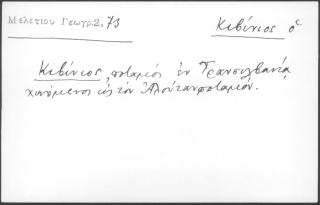 Μελετίου Γεωγρ.2,73
Κιβίνιος ὁ
Κιβίνιος, ποταμὸς ἐν Τρανσυλβανίᾳ
χυνόμενος εἰς τὸν Ἀλούταν ποταμόν.